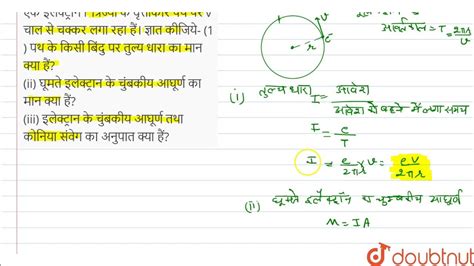 एक इलेक्ट्रॉन r त्रिज्या के वृत्ताकार पथ पर v
चाल से चक्कर लगा रहा हैं। ज्ञात कीजिये- (1
) पथ के किसी बिंदु पर तुल्य धारा का मान
क्या हैं?
(ii) घूमते इलेक्ट्रान के चुंबकीय आघूर्ण का
मान क्या हैं?
(iii) इलेक्ट्रान के चुंबकीय आघूर्ण तथा
कोनिया संवेग का अनुपात क्या हैं?
v
r
e
आवर्तकाल = T = 2πr/v
(i) तुल्य धारा I = आवेश
आवेश को बहने में लगा समय
I = e/T
I = e/2πr × v = ev/2πr
(ii) घूमते इलेक्ट्रॉन का चुम्बकीय आघूर्ण
M = IA
doubtnut